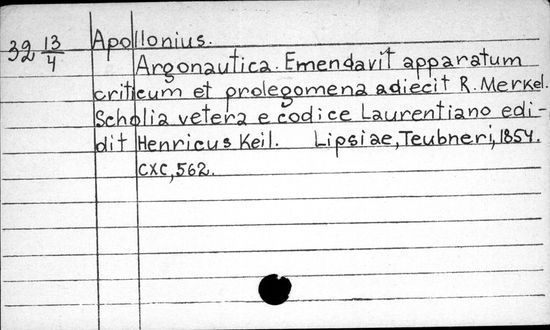 32 13/4 Apollonius.
Argonautica. Emendavit apparatum
criticum et prolegomena adiecit R. Merkel.
Scholia vetera e codice Laurentiano edi-
dit Henricus Keil. Lipsiae, Teubneri, 1854.
CXC, 562.